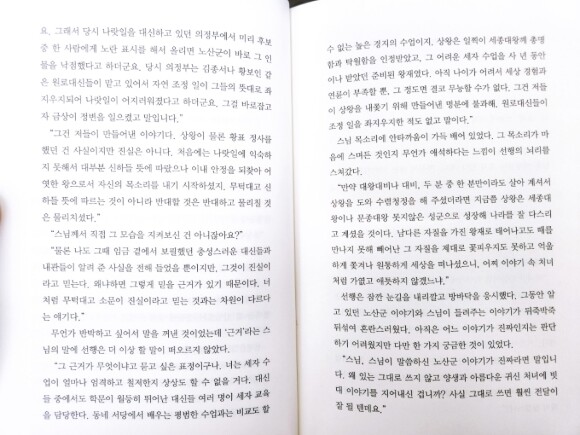 요. 그래서 당시 나랏일을 대신하고 있던 의정부에서 미리 후보
중 한 사람에게 노란 표시를 해서 올리면 노산군이 바로 그 인
물을 낙점했다고 하더군요. 당시 의정부는 김종서나 황보인 같
은 원로대신들이 맡고 있어서 자연 조정 일이 그들의 뜻대로 좌
지우지되어 나랏일이 어지러워졌다고 하더군요. 그걸 바로잡고
자 금상이 정변을 일으켰고 말입니다."
"그건 저들이 만들어낸 이야기다. 상왕이 물론 황표 정사를
했던 건 사실이지만 진실은 아니다. 처음에는 나랏일에 익숙하
지 못해서 대부분 신하들 뜻에 따랐으나 이내 안정을 되찾아 어
엿한 왕으로서 자신의 목소리를 내기 시작하셨지. 무턱대고 신
하들 뜻에 따르는 것이 아니라 반대할 것은 반대하고 물리칠 것
은 물리치셨다."
"스님께서 직접 그 모습을 지켜보신 건 아니잖아요?"
"물론 나도 그때 임금 곁에서 보필했던 충성스러운 대신들과
내관들이 알려 준 사실을 전해 들었을 뿐이지만, 그것이 진실이
라고 믿는다. 왜냐하면 그렇게 믿을 근거가 있기 때문이다. 너
처럼 무턱대고 소문이 진실이라고 믿는 것과는 차원이 다르다
는 얘기다."
무언가 반박하고 싶어서 말을 꺼낸 것이었는데 '근거'라는 스
님의 말에 선행은 더 이상 할 말이 떠오르지 않았다.
"그 근거가 무엇이냐고 묻고 싶은 표정이구나. 너는 세자 수
업이 얼마나 엄격하고 철저한지 상상도 할 수 없을 거다. 대신
들 중에서도 학문이 월등히 뛰어난 대신들 여러 명이 세자 교육
을 담당한다. 동네 서당에서 배우는 평범한 수업과는 비교도 할
수 없는 높은 경지의 수업이지. 상왕은 일찍이 세종대왕께 총명
함과 탁월함을 인정받았고, 그 어려운 세자 수업을 사 년 동안
이나 받았던 준비된 왕재였다. 아직 나이가 어려서 세상 경험과
연륜이 부족할 뿐, 그 정도면 결코 무능할 수가 없다. 그건 저들
이 상왕을 내쫓기 위해 만들어낸 명분에 불과해. 원로대신들이
조정 일을 좌지우지한 적도 없고 말이다."
스님 목소리에 안타까움이 가득 배어 있었다. 그 목소리가 마
음에 스며든 것인지 무언가 애석하다는 느낌이 선행의 뇌리를
스쳐갔다.
"만약 대왕대비나 대비, 두 분 중 한 분만이라도 살아 계셔서
상왕을 도와 수렴청정을 해 주셨더라면 지금쯤 상왕은 세종대
왕이나 문종대왕 못지않은 성군으로 성장해 나라를 잘 다스리
고 계셨을 것이다. 남다른 자질을 가진 왕재로 태어나고도 때를
만나지 못해 빼어난 그 자질을 제대로 꽃피우지도 못하고 억울
하게 쫓겨나 원통하게 세상을 떠나셨으니, 어찌 이야기 속 처녀
처럼 가엾고 애틋하지 않겠느냐."
선행은 잠깐 눈길을 내리깔고 땅바닥을 응시했다. 그동안 알
고 있던 노산군 이야기와 스님이 들려주는 이야기가 뒤죽박죽
뒤섞여 혼란스러웠다. 아직은 어느 이야기가 진짜인지는 판단
하기 어려웠지만 다만 한 가지 궁금한 것이 있었다.
"스님, 스님이 말씀하신 노산군 이야기가 진짜라면 말입니
다. 왜 있는 그대로 쓰지 않고 양생과 아름다운 귀신 처녀에 빗
대 이야기를 지어내신 겁니까? 사실 그대로 쓰면 훨씬 전달이
잘 될 텐데요."